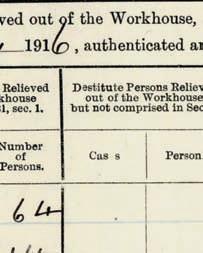 ved out of the Workhouse,
1916, authenticated a
Relieved
khouse
1, sec. 1.
Destitute Persons Reliev
out of the Workhouse
but not comprised in Sec
Number
of
Persons.
Cas s
Person
64